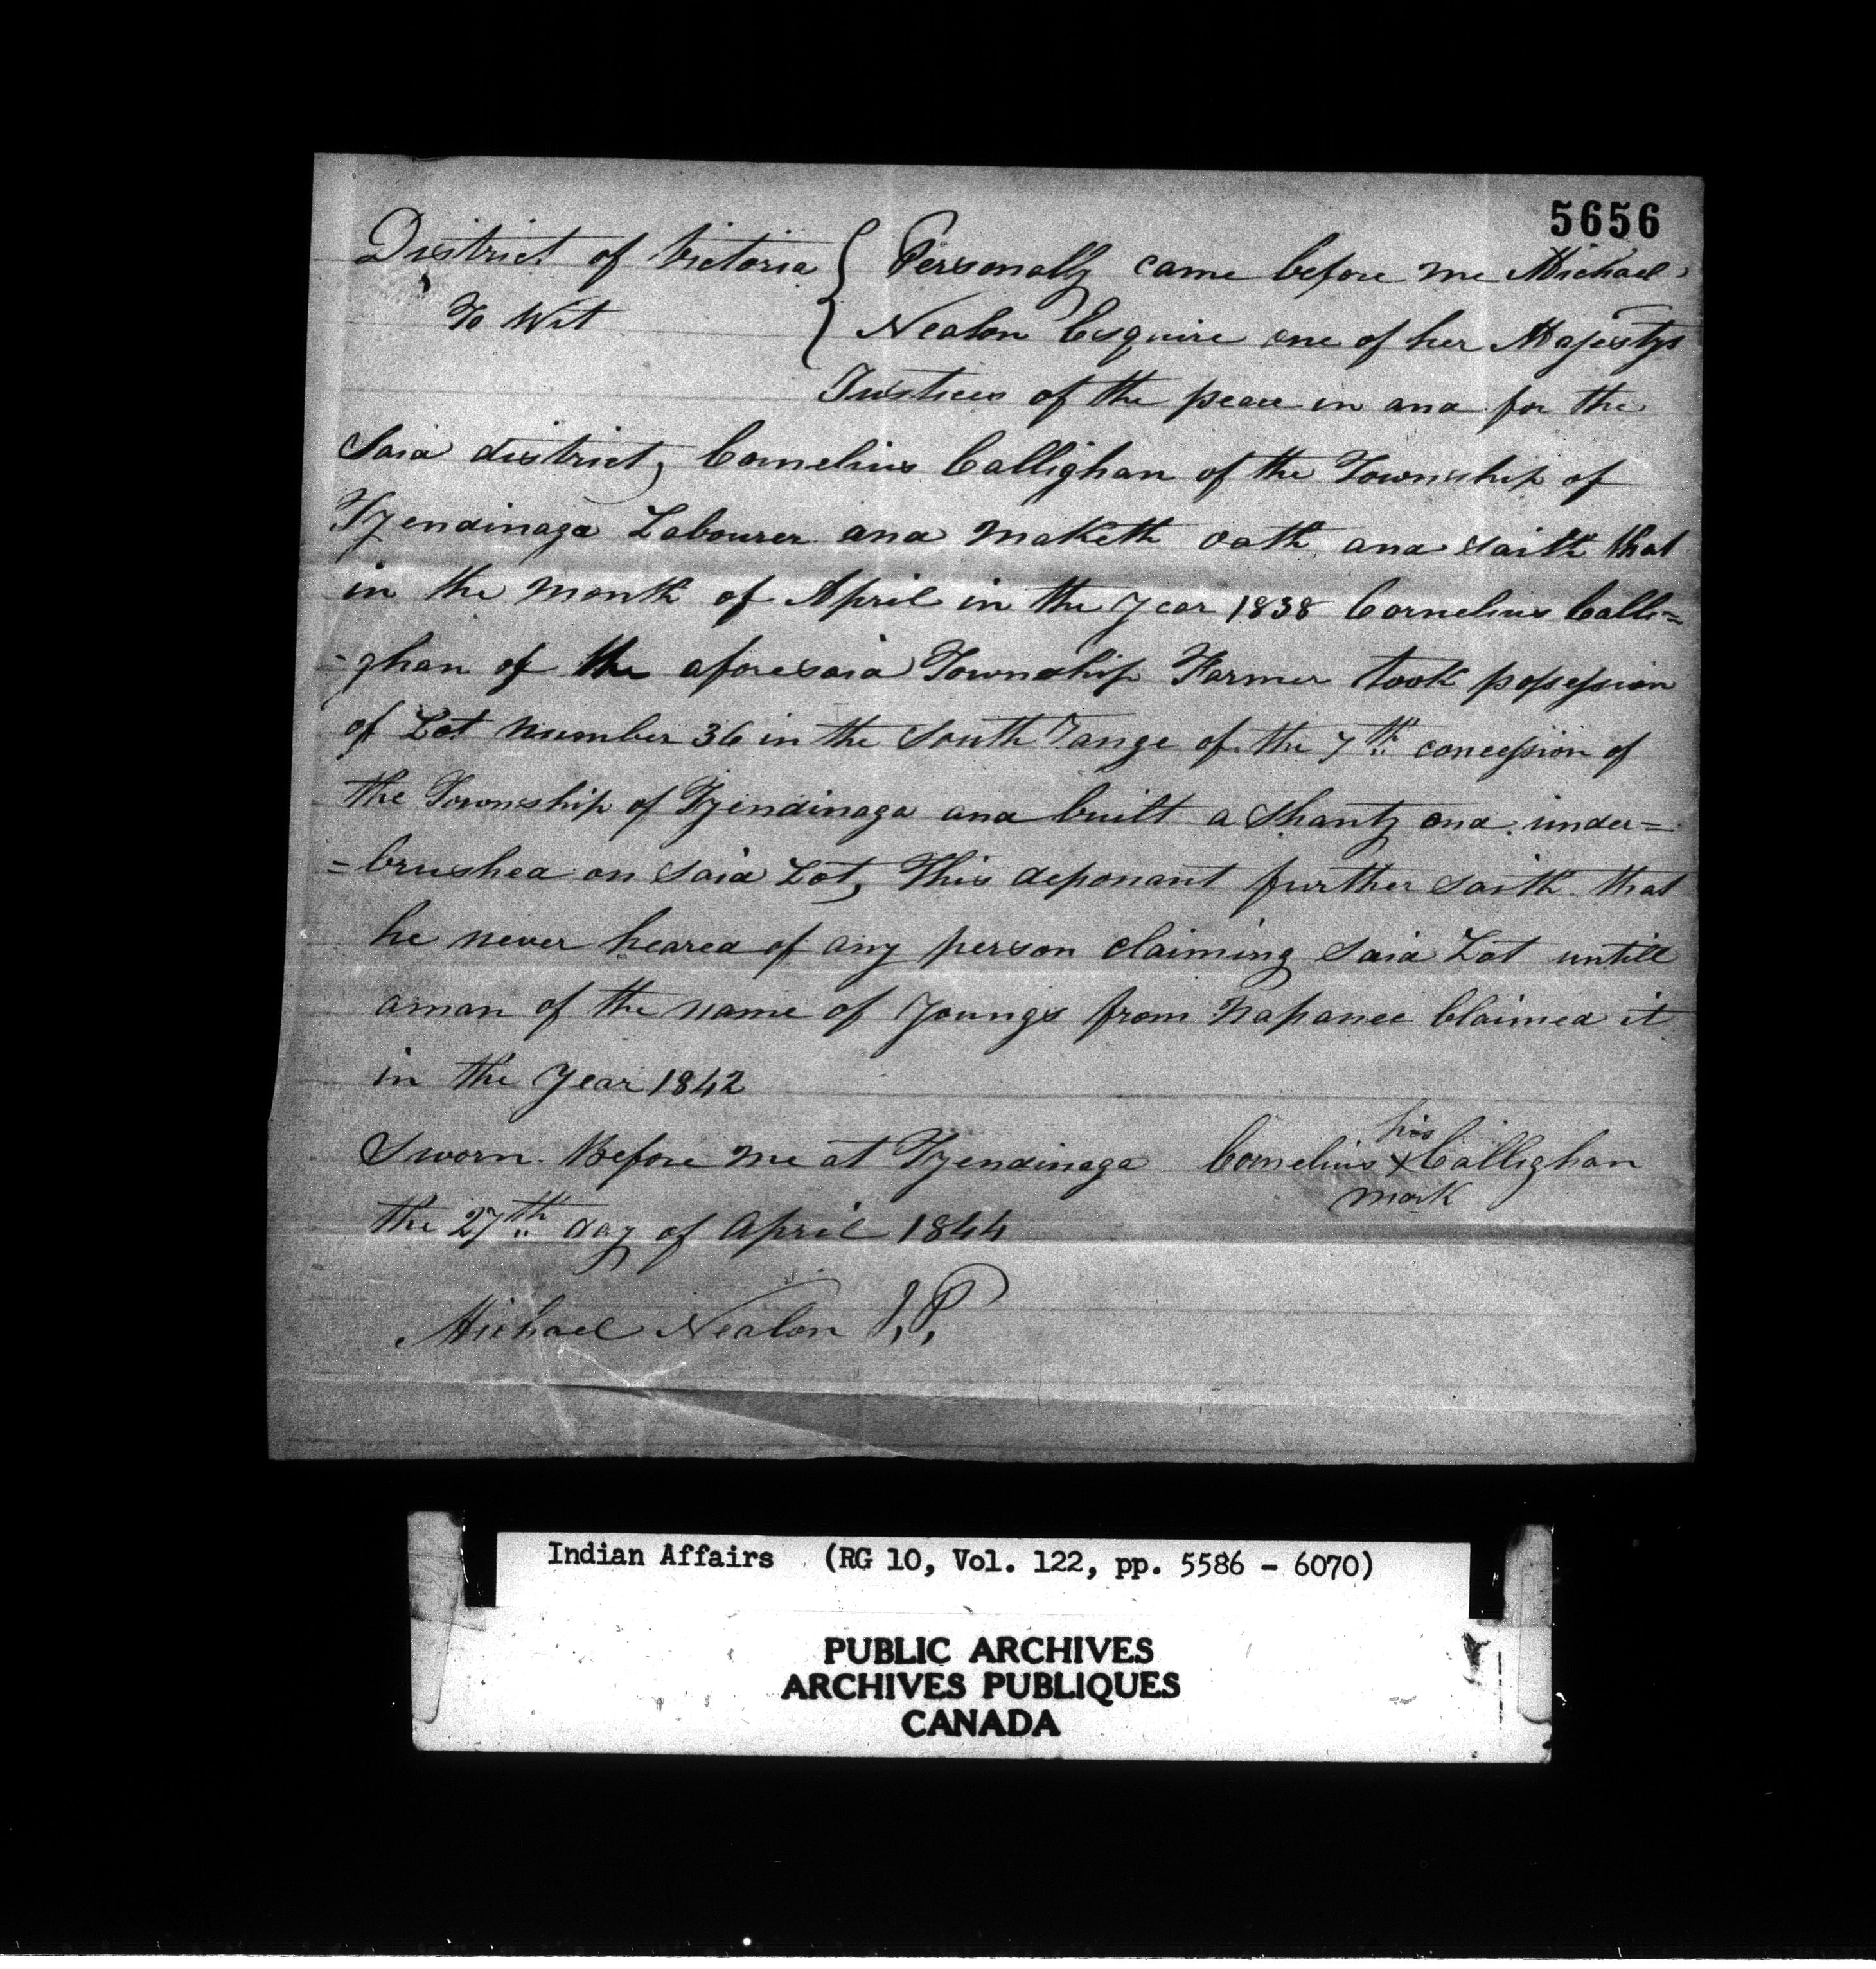 5656
District of Victoria { Personally came before me Michael
To Wit { Nealon Esquire one of her Majestys
Justices of the peace in and for the
Said district, Cornelius Callighan of the Township of
Tyendinaga Labourer and maketh oath and saith that
in the month of April in the year 1838 Cornelius Calli=
=ghan of the aforesaid Township Farmer took possession
of Lot number 36 in the South range of the 7th concession of
the Township of Tyendinaga and built a Shanty and under=
=brushed on Said Lot, This deponant further saith that
he never heared of any person claiming Said Lot untill
a man of the name of Youngs from Napanee Claimed it
in the Year 1842
Sworn Before me at Tyendinaga Cornelius his X mark Callighan
the 27th day of April 1844
Michael Nealon J.P.
Indian Affairs (RG 10, Vol. 122, pp. 5586 - 6070)
PUBLIC ARCHIVES
ARCHIVES PUBLIQUES
CANADA